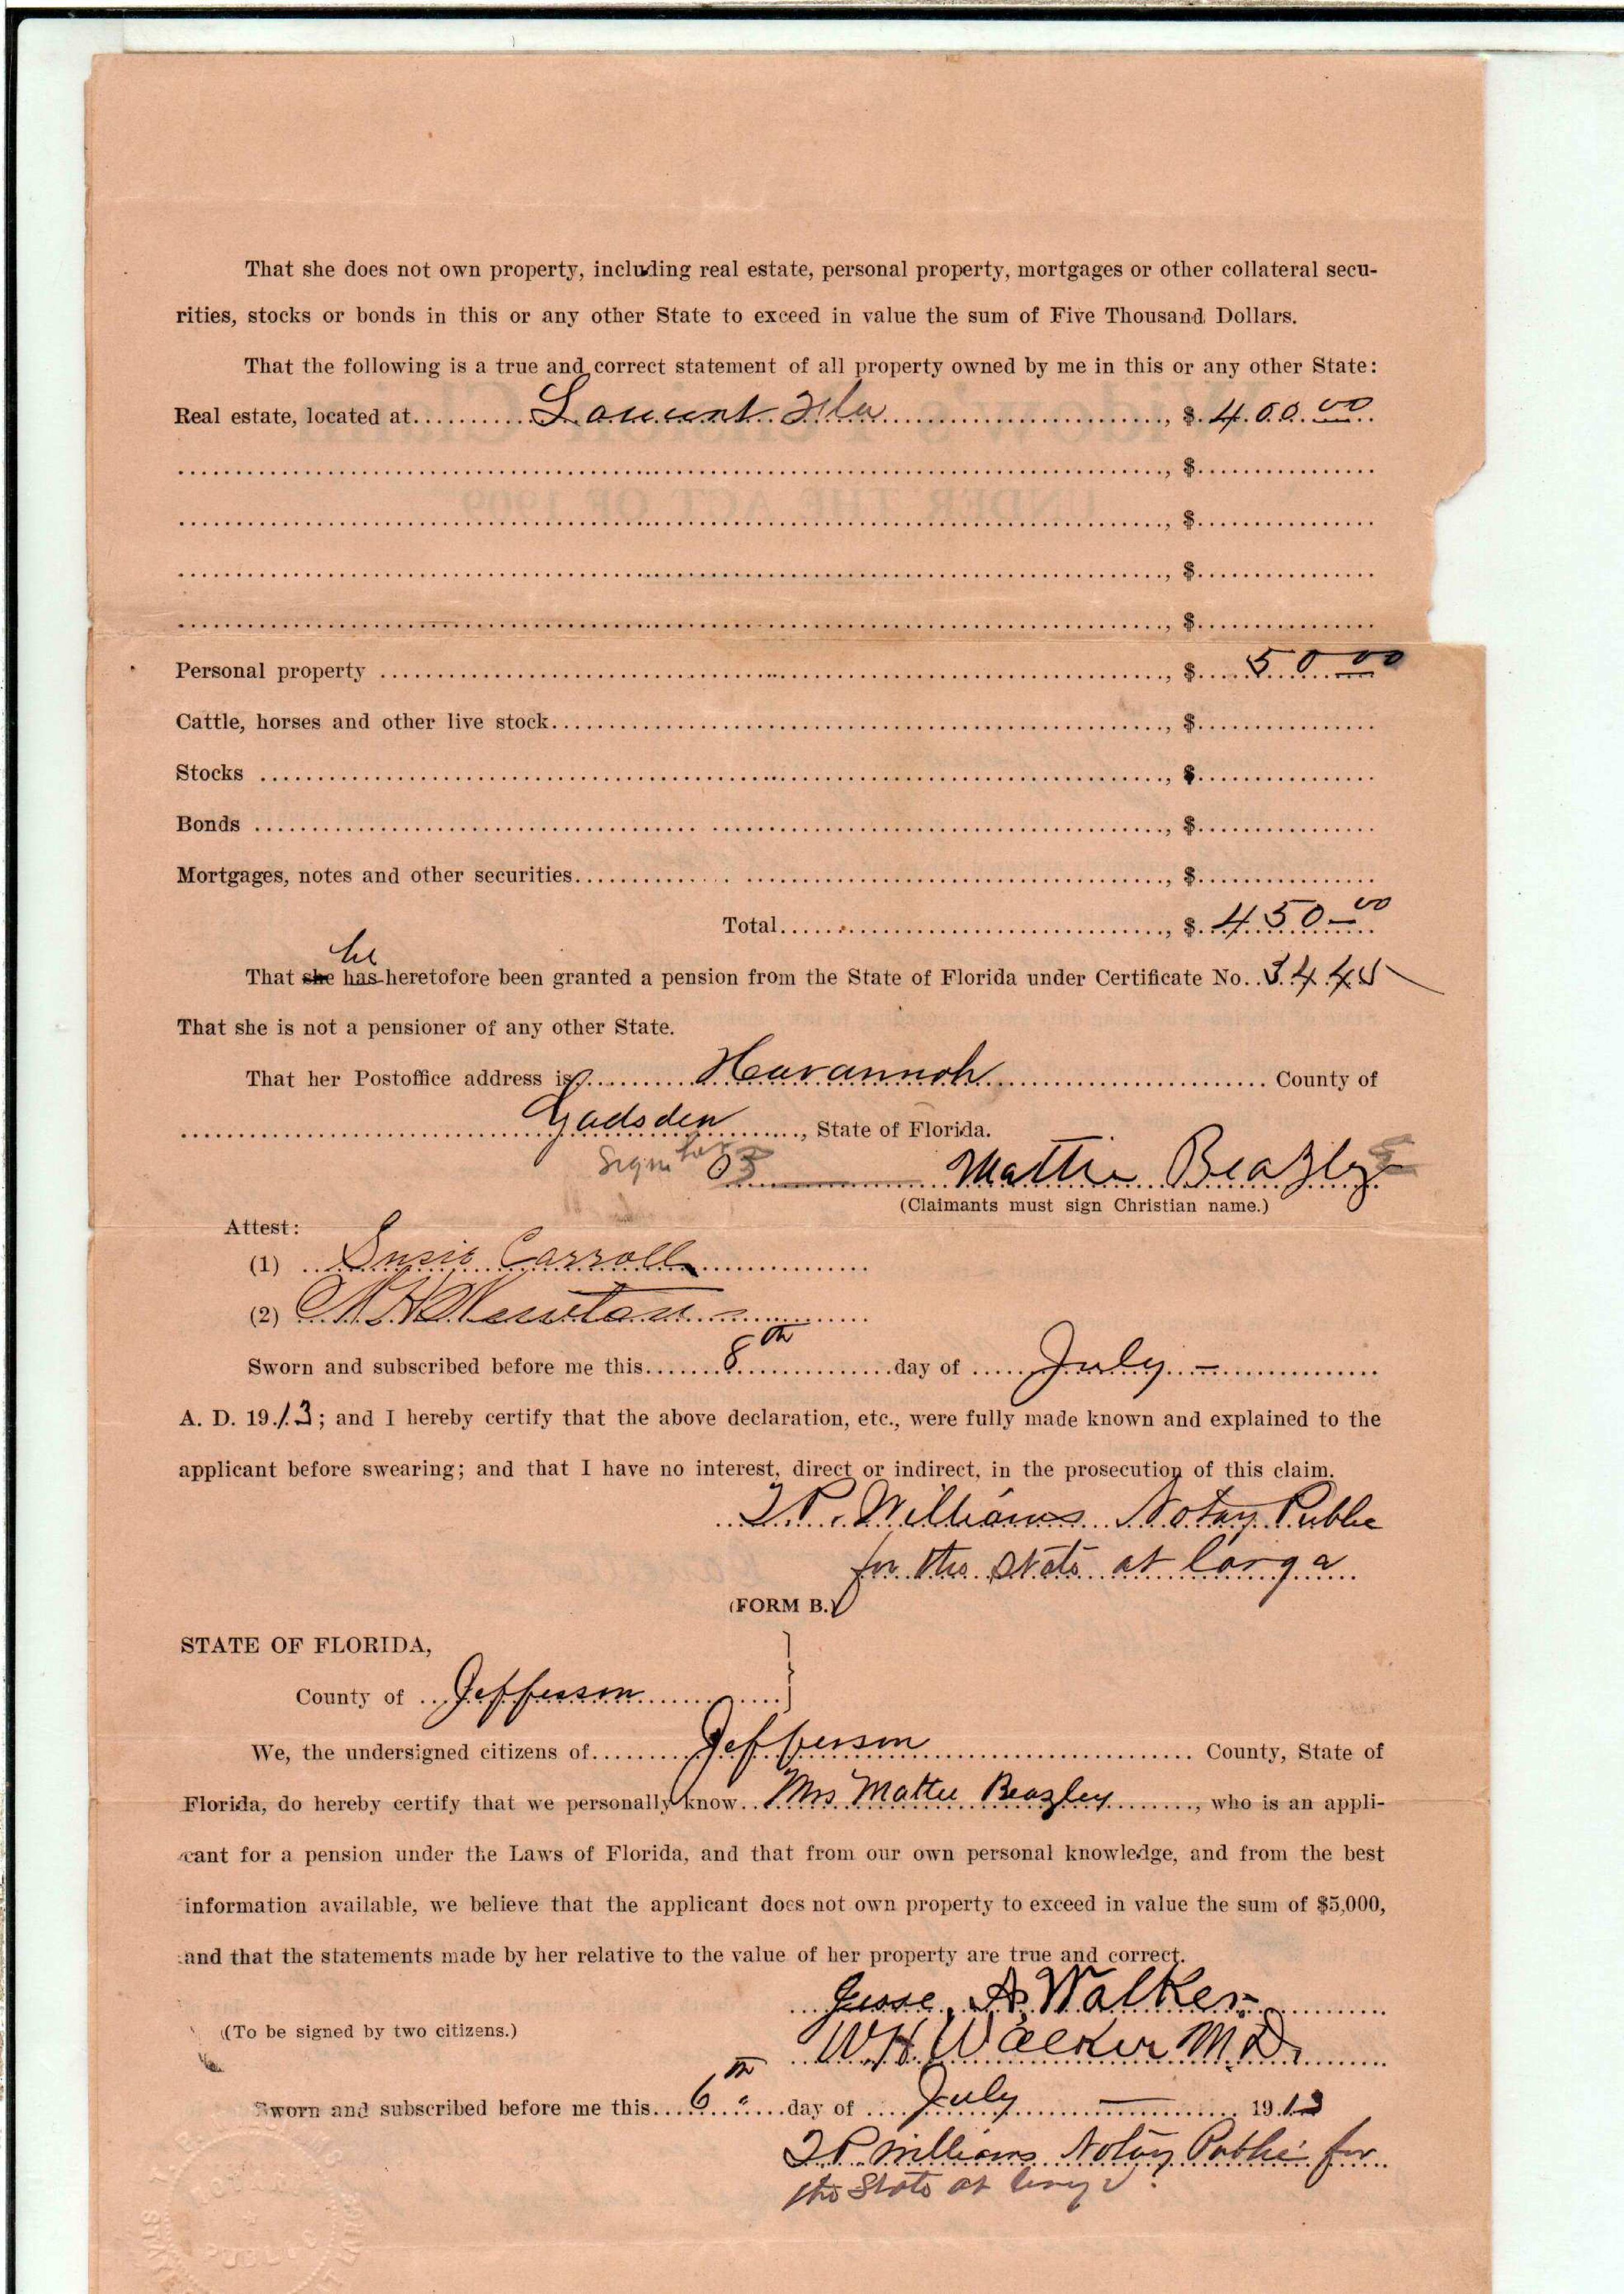 That she does not own property, including real estate, personal property, mortgages or other collateral secu-
rities, stocks or bonds in this or any other State to exceed in value the sum of Five Thousand Dollars.
That the following is a true and correct statement of all property owned by me in this or any other State:
Real estate, located at Lamont Fla, $ 400.00
, $
, $
, $
, $
Personal property, $ 50 00
Cattle, horses and other live stock, $
Stocks, $
Bonds, $
Mortgages, notes and other securities, $
Total, $ 450 00
he
That she has heretofore been granted a pension from the State of Florida under Certificate No. 3445
That she is not a pensioner of any other State.
That her Postoffice address is Havannah County of
Gadsden, State of Florida.
Sign Mattie Beazley
(Claimants must sign Christian name.)
Attest:
(1) Susie Carroll
(2) Newton
Sworn and subscribed before me this 8th day of July
A. D. 1913; and I hereby certify that the above declaration, etc., were fully made known and explained to the
applicant before swearing; and that I have no interest, direct or indirect, in the prosecution of this claim.
T. P. Williams Notary Public
for the State at large
(FORM B.)
STATE OF FLORIDA,
County of Jefferson
We, the undersigned citizens of Jefferson County, State of
Florida, do hereby certify that we personally know Mrs Mattie Beazley, who is an appli-
cant for a pension under the Laws of Florida, and that from our own personal knowledge, and from the best
information available, we believe that the applicant does not own property to exceed in value the sum of $5,000,
and that the statements made by her relative to the value of her property are true and correct.
Jesse A. Walker
(To be signed by two citizens.)
W H Walker M.D.
Sworn and subscribed before me this 6th day of July 1913
T P Williams Notary Public for
the State at large